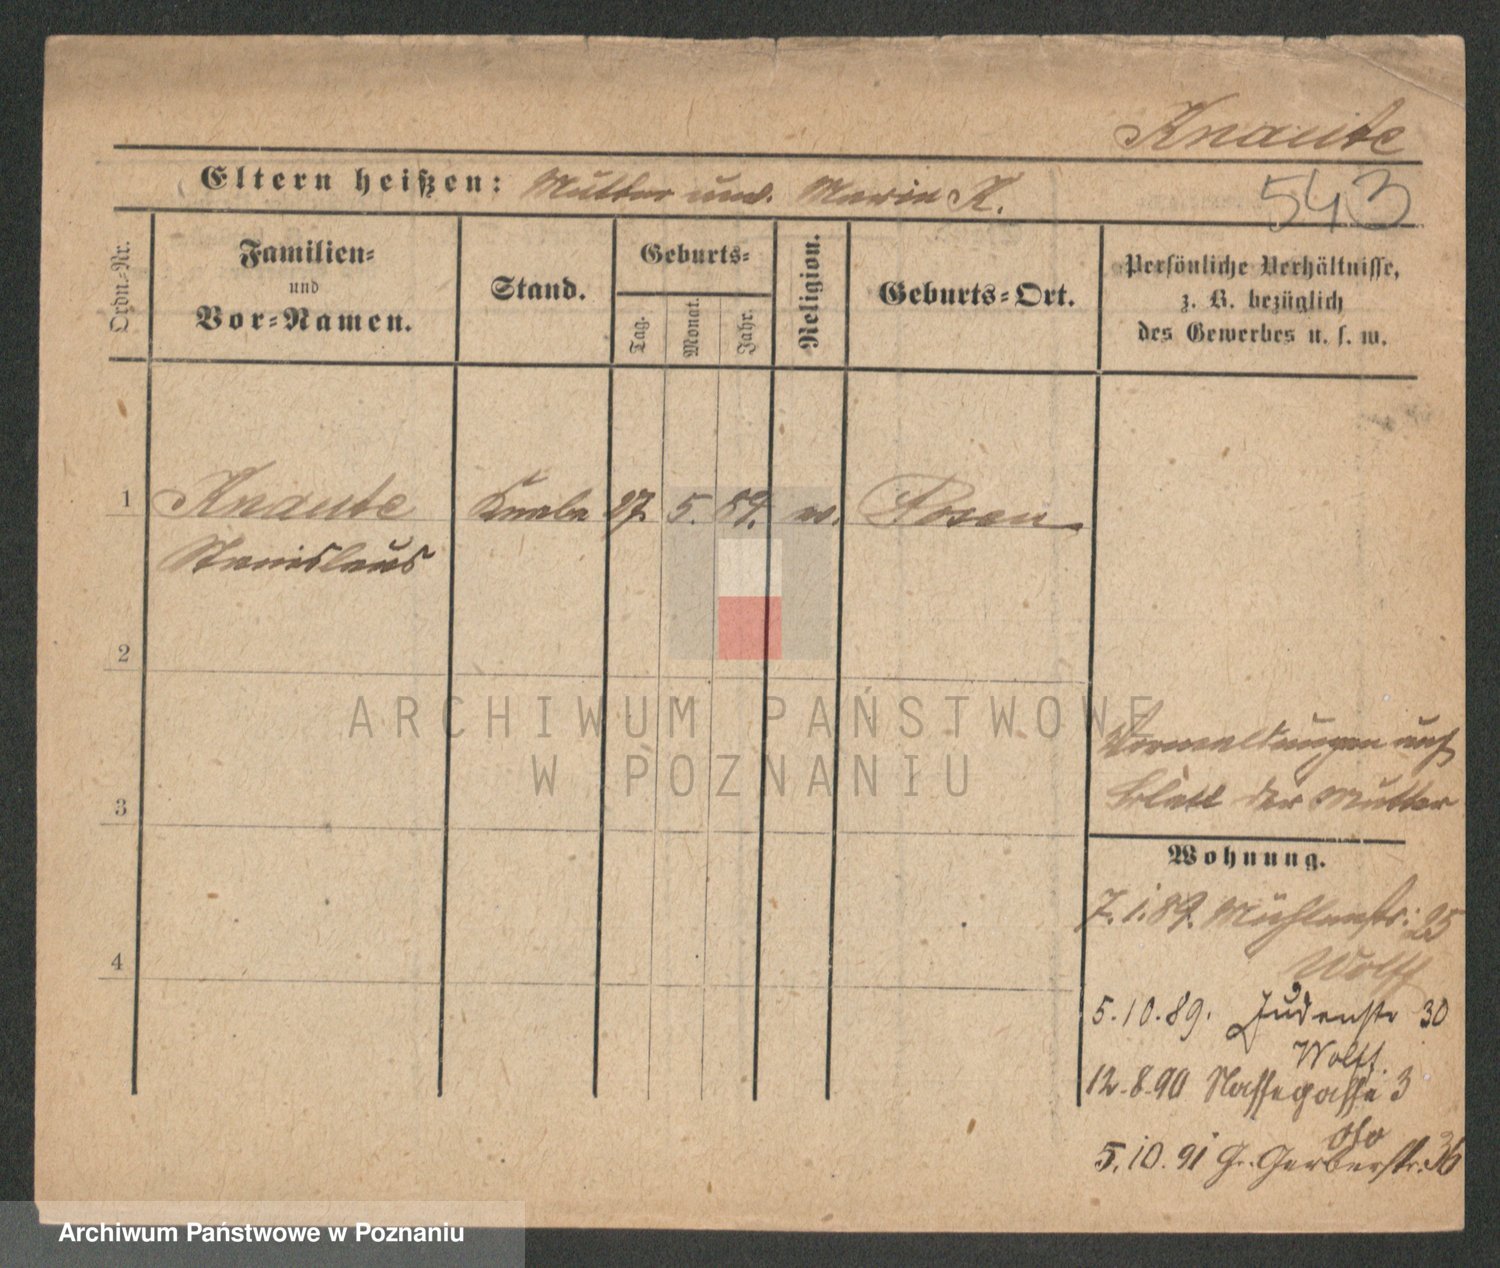 Knaute
Eltern heißen: Mutter unv. Marie K.
543
Ordn.-Nr.
Familien-
und
Vor-Namen.
Stand.
Geburts-
Tag.
Monat.
Jahr.
Religion.
Geburts-Ort.
Persönliche Verhältnisse,
z. B. bezüglich
des Gewerbes u. s. w.
1 Knaute Knabe 27. 5. Posen
Stanislaus
2
3
4
ARCHIWUM PAŃSTWOWE
W POZNANIU
auf
Blatt der Mutter
Wohnung.
7.1.89. Mühlenstr: 25
Wolff
5.10.89. Judenstr 30
Wolff.
12.8.90 Nassegasse 3
5.10.91 Gr. Gerberstr. 36
Archiwum Państwowe w Poznaniu